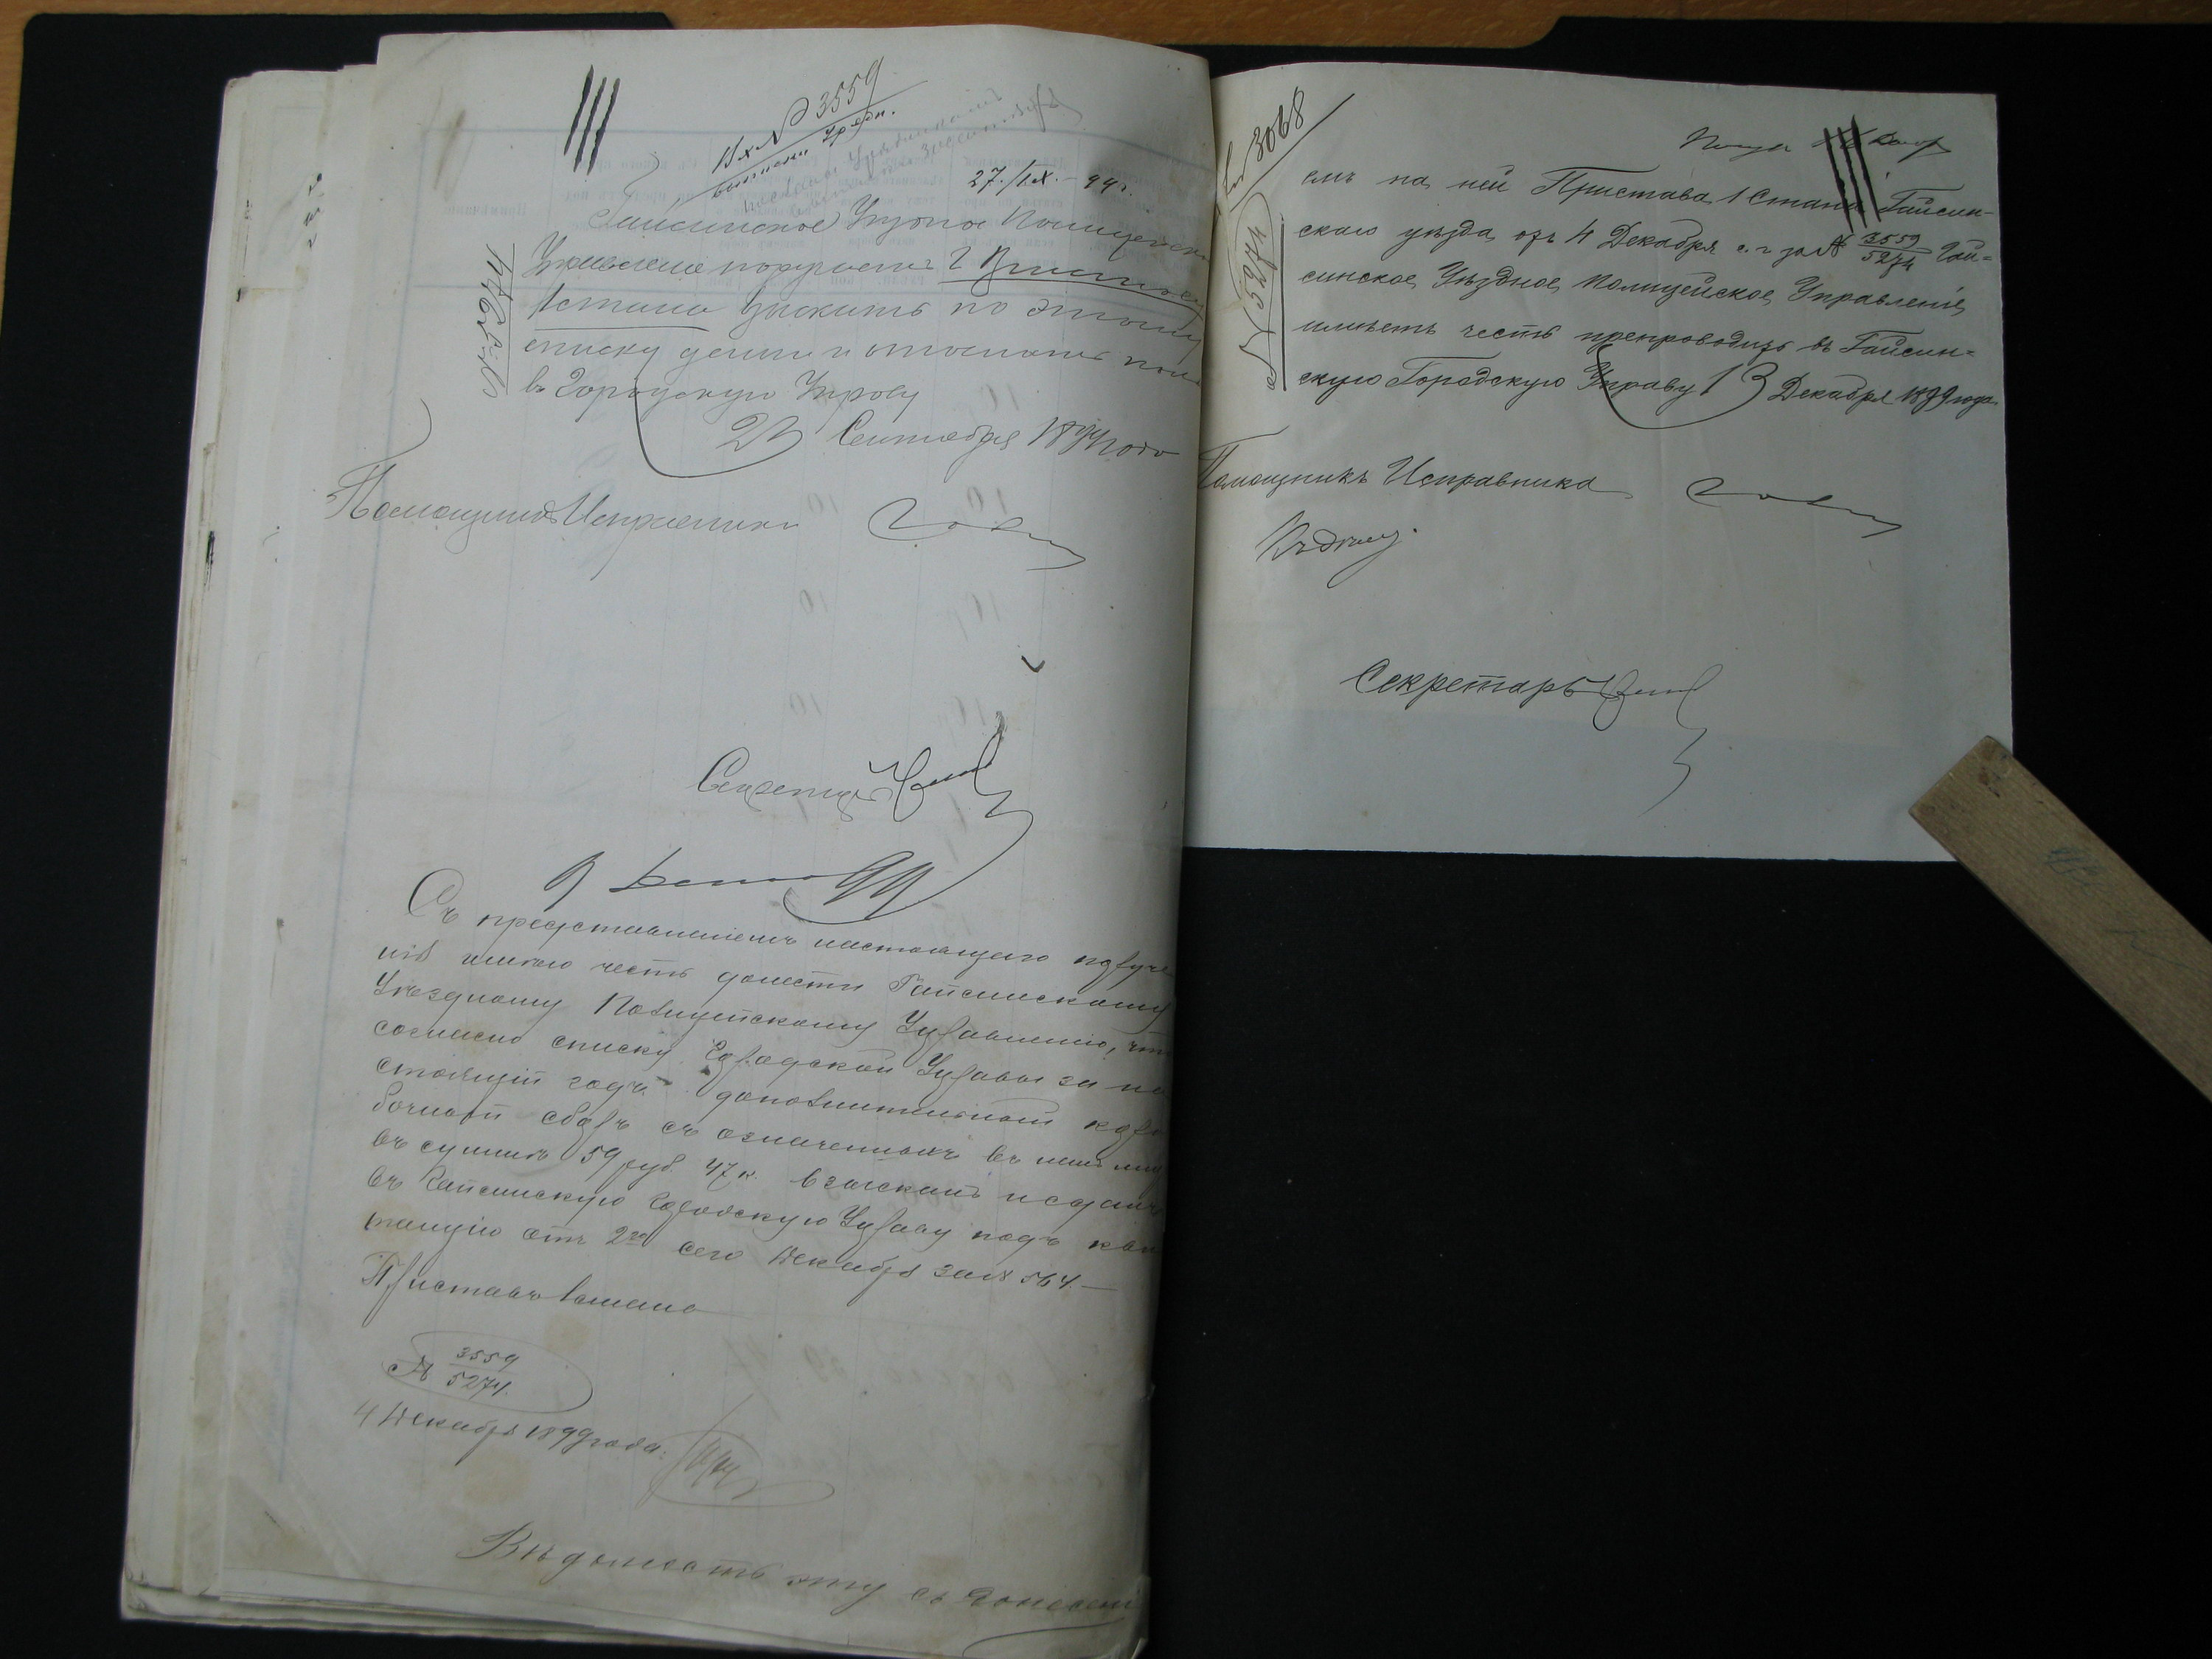 Вх № 3559
27/IX – 99 г.
№ 5274
Гайсинское Уездное Полицейск
Управление поручаетъ Г Приставу
1 стана взыскать по этому
списку деньги и отослать
въ Городскую Управу
23 Сентября 1899 года
Помощникъ Исправника
Секретарь
Съ представленіемъ настоящаго поруче
нія имѣю честь донести Гайсинскому
Уѣздному Полицейскому Управленію, что
согласно списку Городской Управы за на
стоящій годъ дополнительный коро
бочный сборъ съ означенныхъ въ немъ лицъ
въ суммѣ 59 руб. 47 к. взысканъ и сданъ
въ Гайсинскую Городскую Управу подъ кви
танцію отъ 2го сего Декабря за № 564.—
Приставъ 1 стана
№ 3559
5274.
4 Декабря 1899 года.
Вѣдомость эту съ донесені
3068
№ 5274
емъ на ней Пристава 1 Стана Гайсин-
скаго уѣзда, отъ 4 Декабря с. г за № 3559/5274 Гай=
синское Уѣздное Полицейское Управленіе
имѣетъ честь препроводить въ Гайсин=
скую Городскую Управу 13 Декабря 1899 года.
Помощникъ Исправника
Къ дѣлу.
Секретарь